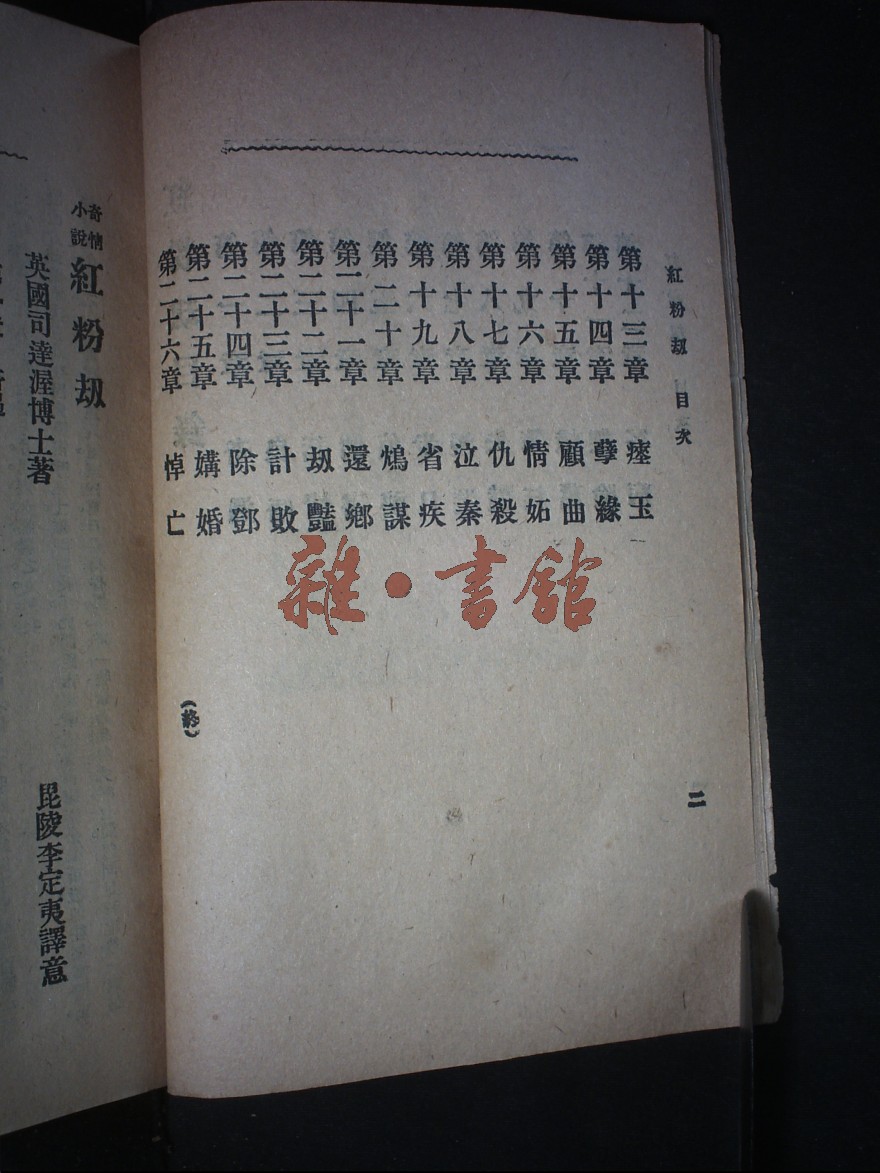 紅粉刼 目次
二
第十三章 瘞玉
第十四章 孽緣
第十五章 顧曲
第十六章 情妬
第十七章 仇殺
第十八章 泣秦
第十九章 省疾
第二十章 鴆謀
第二十一章 還鄉
第二十二章 刼豔
第二十三章 計敗
第二十四章 除鄧
第二十五章 媾婚
第二十六章 悼亡
(終)
雜·書館
奇情小說
紅粉刼
英國司達渥博士著
毘陵李定夷譯意